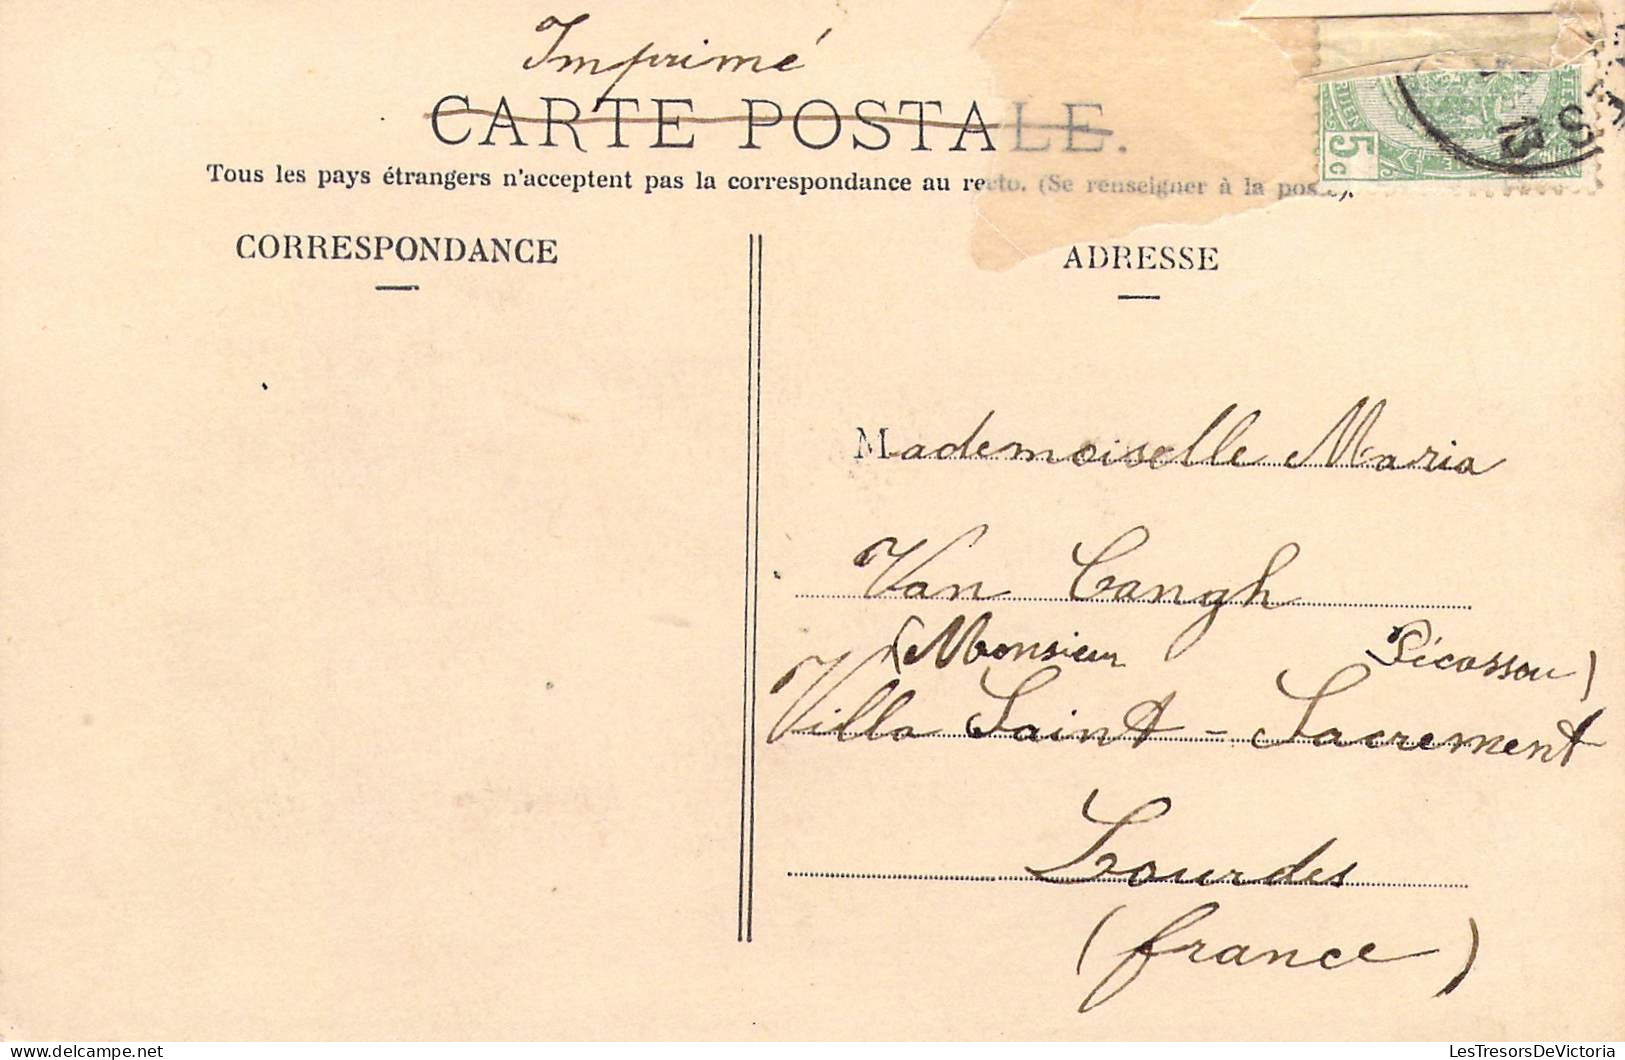 Imprimé
CARTE POSTALE.
Tous les pays étrangers n'acceptent pas la correspondance au recto. (Se renseigner à la poste).
5c
13
CORRESPONDANCE
ADRESSE
Mademoiselle Maria
Van Cangh
(Monsieur Pécassou)
Villa Saint-Sacrement
Lourdes
(france)
LesTresorsDeVictoria